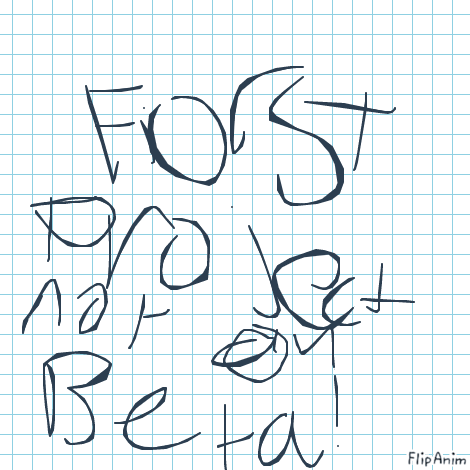 FOrSt
Project
not
Beta!
FlipAnim